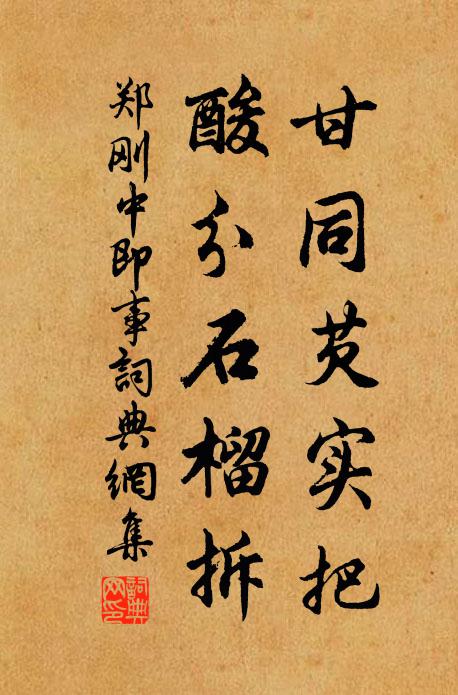 甘同芡实把
酸分石榴拆
郑刚中即事詞典網集
詞典网印